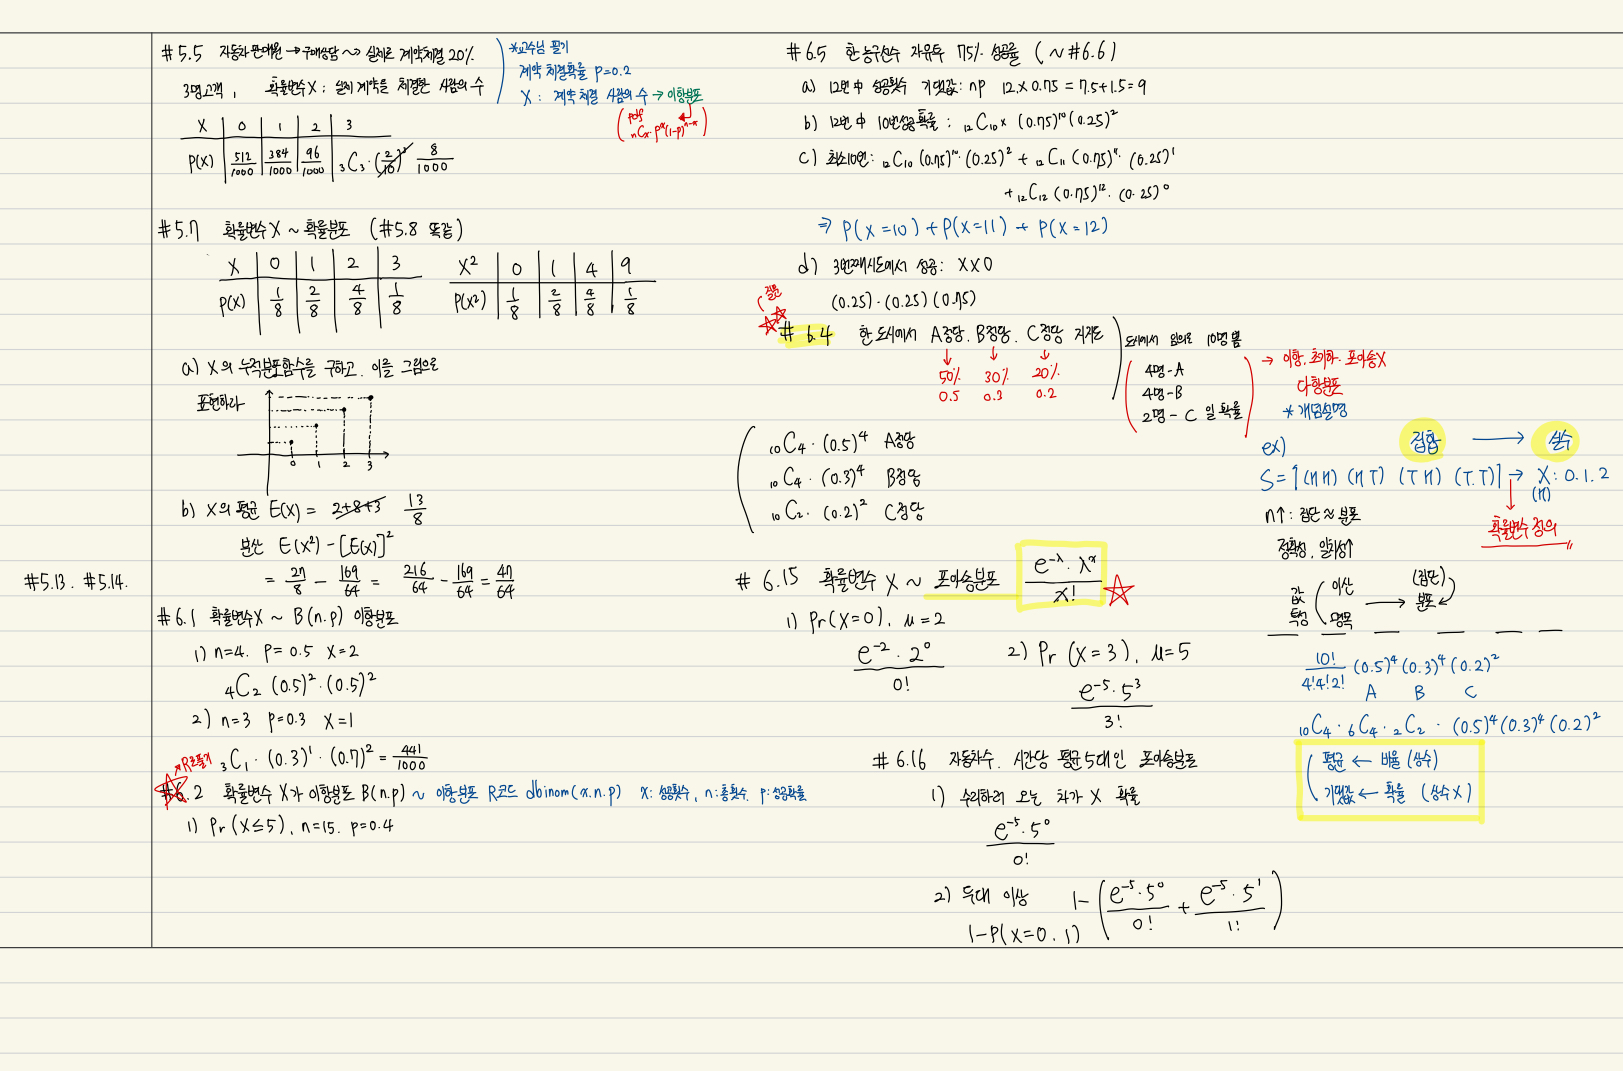 #5.5 자동차 판매원 → 구매상담 ~> 실제로 계약체결 20%
3명 고객, 확률변수 X; 실제 계약을 체결한 사람의 수
X 0 1 2 3
P(X) 512/1000 384/1000 96/1000 ₃C₃·(2/10)³ 8/1000
*교수님 필기
계약 체결확률 p=0.2
X : 계약 체결 사람의 수 → 이항분포
pdf
nCx·p^x(1-p)^n-x
#5.7 확률변수 X ~ 확률분포 (#5.8 똑같)
X 0 1 2 3
P(X) 1/8 2/8 4/8 1/8
X² 0 1 4 9
P(X²) 1/8 2/8 4/8 1/8
a) X의 누적분포함수를 구하고, 이를 그림으로
표현하라
0 1 2 3
b) X의 평균 E(X) = 2+8+3 13/8
분산 E(X²) - [E(X)]²
= 27/8 - 169/64 = 216/64 - 169/64 = 47/64
#5.13. #5.14.
#6.1 확률변수X ~ B(n.p) 이항분포
1) n=4. P=0.5 X=2
₄C₂ (0.5)²·(0.5)²
2) n=3 P=0.3 X=1
₃C₁·(0.3)¹·(0.7)² = 441/1000
→R로풀기
#6.2 확률변수 X가 이항분포 B(n.p) ~ 이항분포 R코드 dbinom(x.n.p) x: 성공횟수, n: 총횟수. p: 성공확률
1) Pr(X≤5), n=15. p=0.4
#6.5 한 농구선수 자유투 75% 성공률 (~#6.6)
a) 12번 中 성공횟수 기댓값: np 12×0.75 = 7.5+1.5=9
b) 12번 中 10번성공확률: ₁₂C₁₀× (0.75)¹⁰(0.25)²
c) 최소10번: ₁₂C₁₀ (0.75)¹⁰·(0.25)² + ₁₂C₁₁ (0.75)¹¹·(0.25)¹
+ ₁₂C₁₂ (0.75)¹²·(0.25)⁰
⇒ P(X=10) + P(X=11) + P(X=12)
d) 3번째시도에서 성공: XX0
(0.25)·(0.25)(0.75)
질문
#6.4 한 도시에서 A정당. B정당. C정당 지지도
50% 30% 20%
0.5 0.3 0.2
도시에서 임의로 10명 뽑
4명-A
4명-B
2명-C 일 확률
→ 이항. 초기하. 포아송X
다항분포
*개념설명
₁₀C₄·(0.5)⁴ A정당
₁₀C₄·(0.3)⁴ B정당
₁₀C₂·(0.2)² C정당
ex) 집합 → 실수
S={(HH) (HT) (TH) (T.T)} → X: 0.1.2
(H)
확률변수 정의
n↑: 집단≈분포
정확성, 일치성↑
값 특성 이산 명목 → (집단) 분포
10!/4!4!2! (0.5)⁴(0.3)⁴(0.2)²
A B C
₁₀C₄·₆C₄·₂C₂·(0.5)⁴(0.3)⁴(0.2)²
평균 ← 비율 (상수)
기댓값 ← 확률 (상수X)
#6.15 확률변수 X ~ 포아송분포 e^-λ·λ^x/x!
1) Pr(X=0), μ=2
e⁻²·2⁰/0!
2) Pr (X=3), μ=5
e⁻⁵·5³/3!
#6.16 자동차수. 시간당 평균 5대인 포아송분포
1) 수리하러 오는 차가 X 확률
e⁻⁵·5⁰/0!
2) 두대 이상 1-(e⁻⁵·5⁰/0! + e⁻⁵·5¹/1!)
1-P(X=0.1)